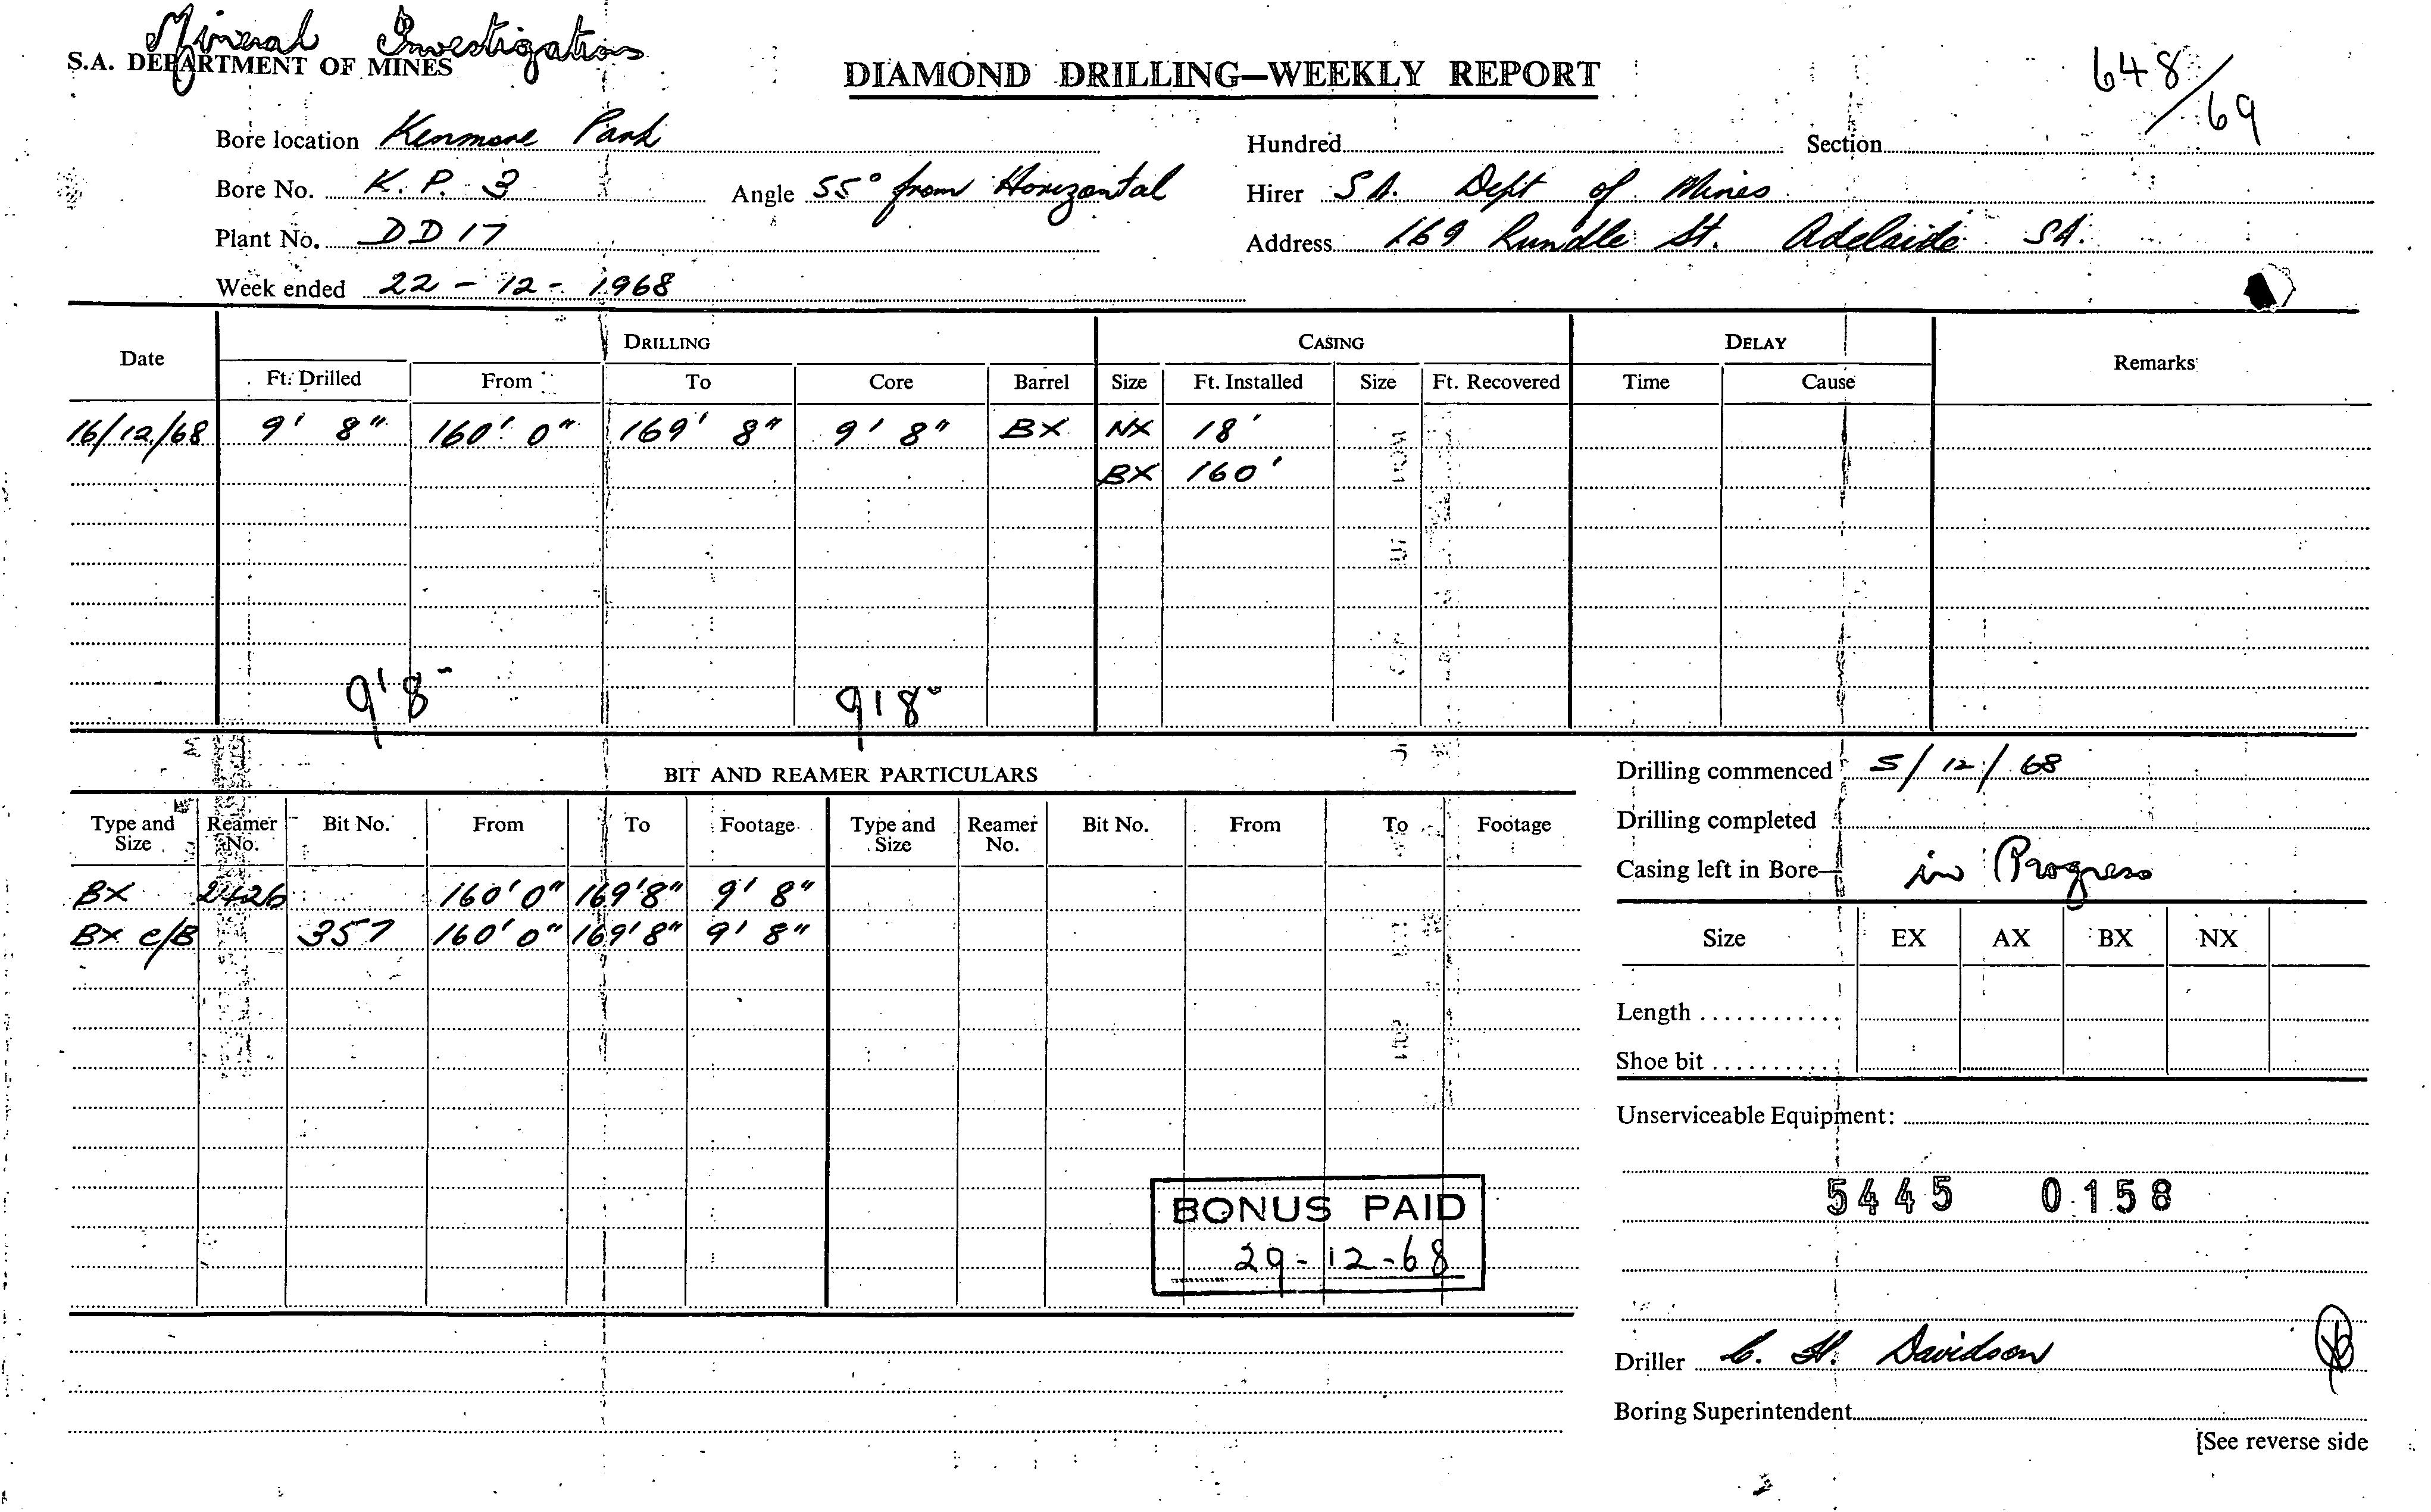 Mineral Investigations
S.A. DEPARTMENT OF MINES
DIAMOND DRILLING—WEEKLY REPORT
648/69
Bore location Kenmore Park
Hundred Section
Bore No. K. P. 3 Angle 55° from Horizontal
Hirer S A. Dept of Mines
Plant No. DD 17
Address 169 Rundle St. Adelaide SA.
Week ended 22 - 12 - 1968
Date DRILLING CASING DELAY Remarks
Ft. Drilled From To Core Barrel Size Ft. Installed Size Ft. Recovered Time Cause
16/12/68 9' 8" 160' 0" 169' 8" 9' 8" BX NX 18'
BX 160'
9'8" 9'8"
BIT AND REAMER PARTICULARS
Type and Size Reamer No. Bit No. From To Footage Type and Size Reamer No. Bit No. From To Footage
BX 2426 160'0" 169'8" 9' 8"
BX C/B 357 160'0" 169'8" 9' 8"
BONUS PAID
29-12-68
Drilling commenced 5/12/68
Drilling completed
Casing left in Bore— in Progress
Size EX AX BX NX
Length ............
Shoe bit ...........
Unserviceable Equipment:
5445 0158
Driller C. H. Davidson
Boring Superintendent
[See reverse side